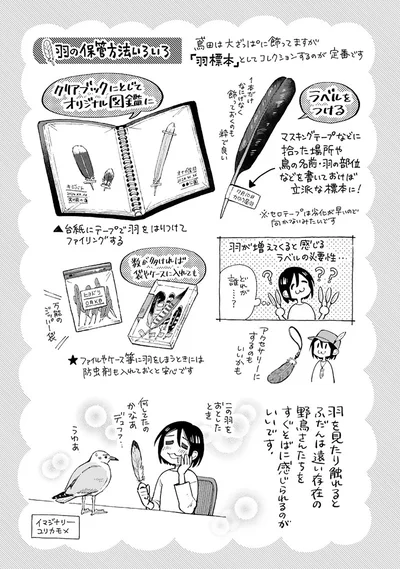 羽の保管方法いろいろ
鳶田は大ざっぱに飾ってますが
「羽標本」としてコレクションするのが定番です
クリアブックにとじて
オリジナル図鑑に
1本だけ
なにげなく
飾っておくのも
粋で良い
ラベルを
つける
マスキングテープなどに
拾った場所や
鳥の名前・羽の部位
などを書いておけば
立派な標本に!
※セロテープは劣化が早いので
向かないみたいです
▲台紙にテープで羽をはりつけて
ファイリングする
数が多ければ
袋やケースに入れても
万能の
ジッパー袋
羽が増えてくると感じる
ラベルの必要性…
どれが
誰…?
アクセサリーに
するのも
いいかも
★ファイルやケース等に羽をしまうときには
防虫剤も入れておくと安心です
羽を見たり触れると
ふだんは遠い存在の
野鳥さんたちを
すぐそばに感じられるのが
いいです。
この羽を
おとした
とき
何してたの
かなあ
デュフフ…
うわあ
イマジナリー
ユリカモメ